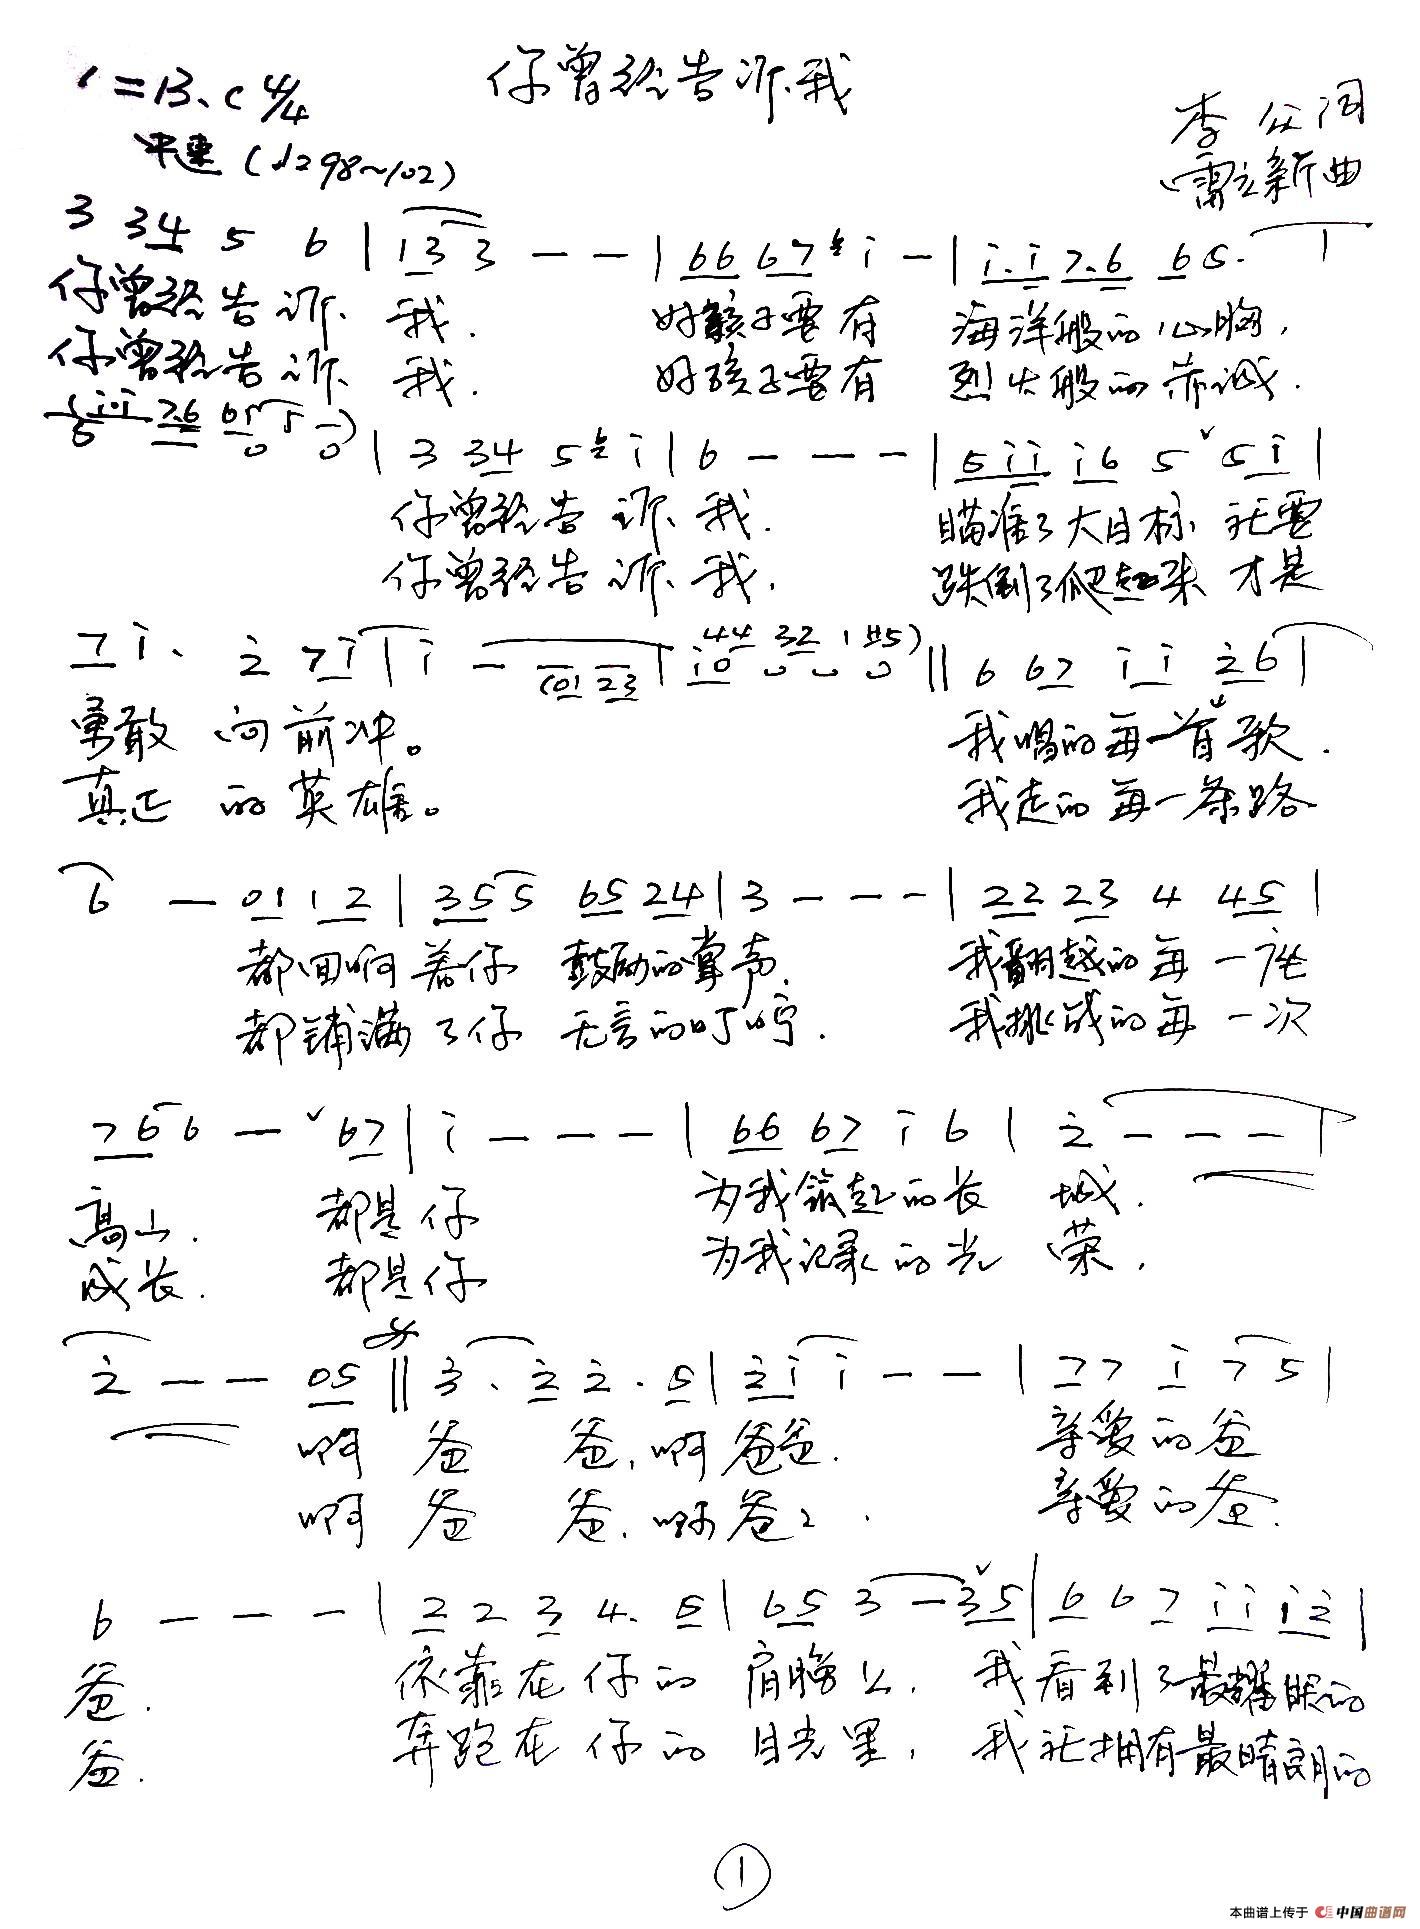 你曾经告诉我
1=B、C 4/4
中速(♩=98~102)
李众词
雷立新曲
3 34 5 6 | 13 3 - - | 66 67 i - | i.i 7.6 65. |
你曾经告诉我. 好孩子要有 海洋般的心胸,
你曾经告诉我. 好孩子要有 烈火般的赤诚.
| 3 34 5 i | 6 - - - | 5ii i6 5 5i |
你曾经告诉我. 瞄准了大目标 就要
你曾经告诉我, 跌倒了爬起来 才是
7i. 2 7i | i - (01 23 | i0 44 32 1 #5) || 6 67 i i 26 |
勇敢 向前冲。 我唱的每一首歌.
真正 的英雄。 我走的每一条路
6 - 01 12 | 355 65 24 | 3 - - - | 22 23 4 45 |
都回响着你 鼓励的掌声. 我翻越的每一座
都铺满了你 无言的叮咛. 我挑战的每一次
766 - 67 | i - - - | 66 67 i 6 | 2 - - - |
高山. 都是你 为我筑起的长城.
成长. 都是你 为我记录的光荣.
2 - - 05 || 3. 2 2. 5 | 2i i - - | 77 i 7 5 |
啊 爸 爸, 啊爸爸. 亲爱的爸
啊 爸 爸, 啊爸〻. 亲爱的爸.
6 - - - | 2 2 3 4. 5 | 65 3 - 35 | 6 6 7 ii i2 |
爸. 依靠在你的 肩膀上, 我看到了最耀眼的
爸. 奔跑在你的 目光里, 我就拥有最晴朗的
①
本曲谱上传于 中国曲谱网